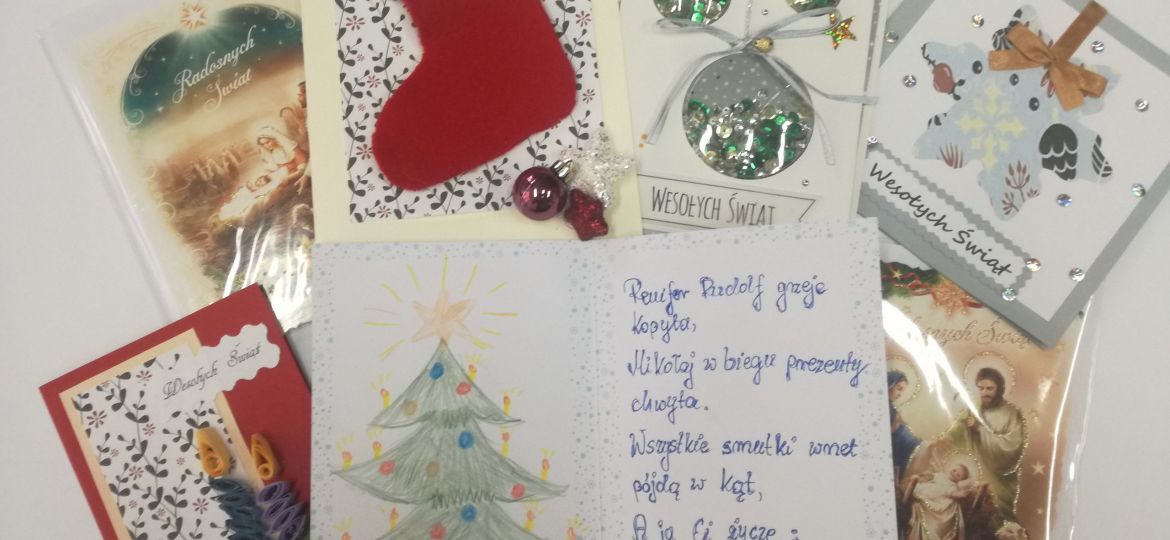 Radosnych
Świąt
WESOŁYCH ŚWIĄT
Wesołych Świąt
Wesołych Świąt
Renifer Rudolf grzeje
kopyta,
Mikołaj w biegu prezenty
chwyta.
Wszystkie smutki wnet
pójdą w kąt,
A ja Ci życzę :
Świąt